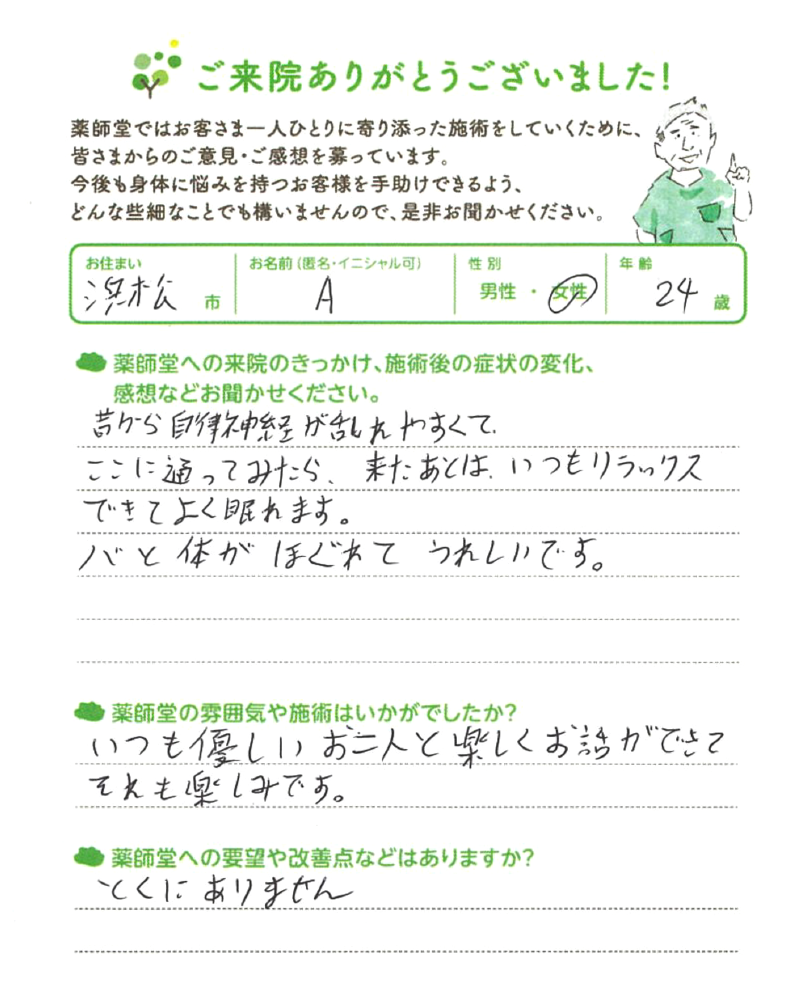 ご来院ありがとうございました!
薬師堂ではお客さま一人ひとりに寄り添った施術をしていくために、
皆さまからのご意見・ご感想を募っています。
今後も身体に悩みを持つお客様を手助けできるよう、
どんな些細なことでも構いませんので、是非お聞かせください。
お住まい お名前(匿名・イニシャル可) 性別 年齢
浜松 市 A 男性 ・ 女性 24 歳
薬師堂への来院のきっかけ、施術後の症状の変化、
感想などお聞かせください。
昔から自律神経が乱れやすくて、
ここに通ってみたら、来たあとは、いつもリラックス
できてよく眠れます。
心と体がほぐれてうれしいです。
薬師堂の雰囲気や施術はいかがでしたか?
いつも優しいお二人と楽しくお話ができて
それも楽しみです。
薬師堂への要望や改善点などはありますか?
とくにありません